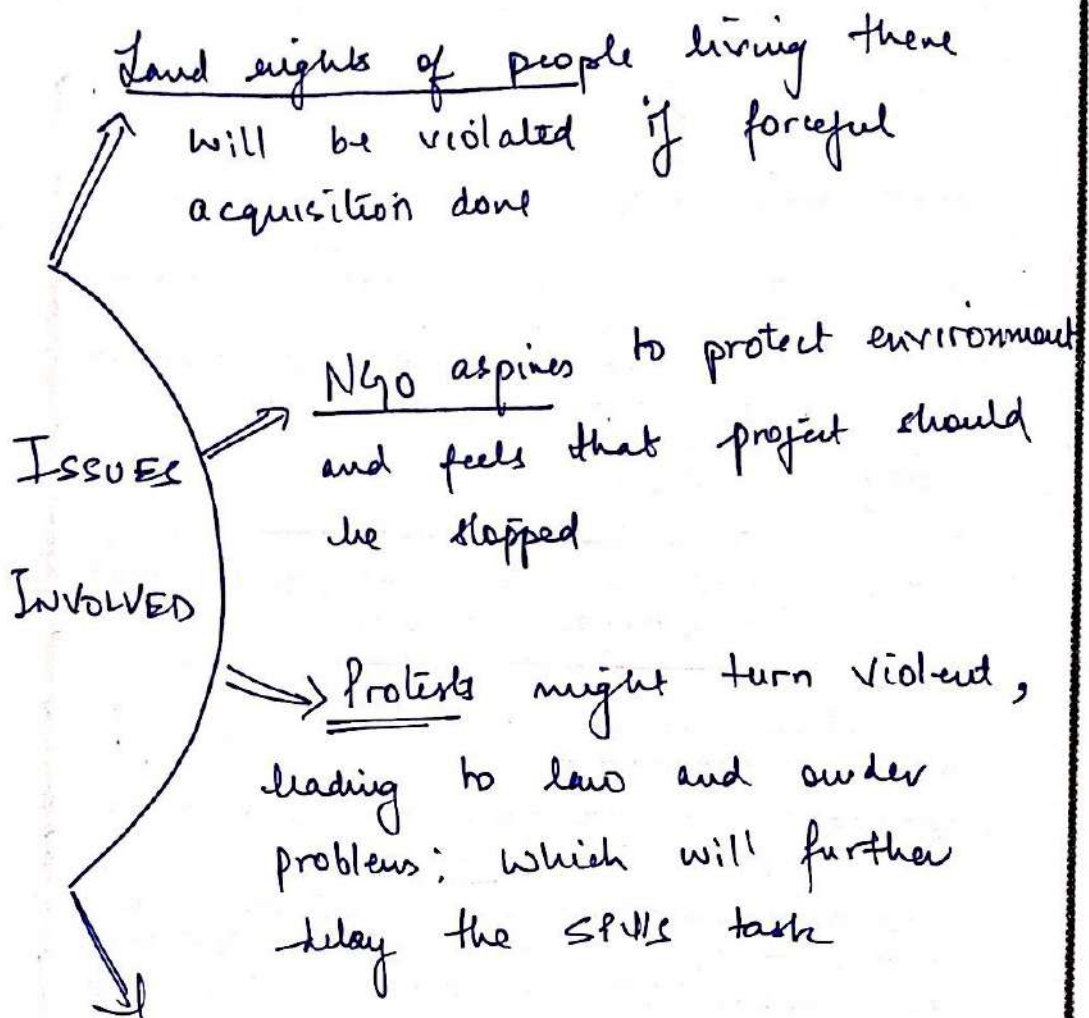 Land rights of people living there
will be violated if forceful
acquisition done
NGO aspires to protect environment
and feels that project should
be stopped
ISSUES
INVOLVED
Protests might turn violent,
leading to law and order
problems; which will further
delay the SPV's task